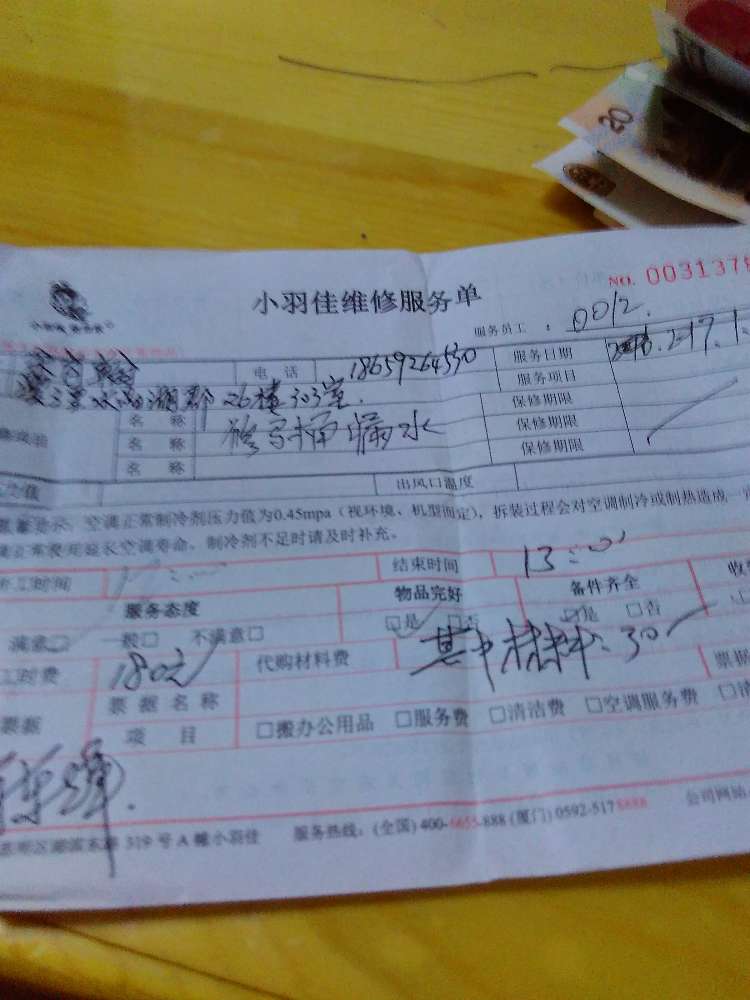 NO. 0031378
小羽佳维修服务单
服务员工 : 0012.
电 话 18659264530 服务日期
湖郡26楼303室. 服务项目
名 称 修马桶漏水 保修期限
名 称 保修期限
名 称 保修期限
出风口温度
空调正常制冷剂压力值为0.45mpa（视环境、机型而定），拆装过程会对空调制冷或制热造成一
正常使用延长空调寿命，制冷剂不足时请及时补充。
工时间 结束时间 13:00
服务态度 物品完好 备件齐全 收
满意□ 一般□ 不满意□ □是 □否 □是 □否
工时费 180元 代购材料费 其中材料:30 票据
票据 票据名称
项 目 □搬办公用品 □服务费 □清洁费 □空调服务费
319号A幢小羽佳 服务热线：(全国) 400-6655-888 (厦门) 0592-5178888 公司网站